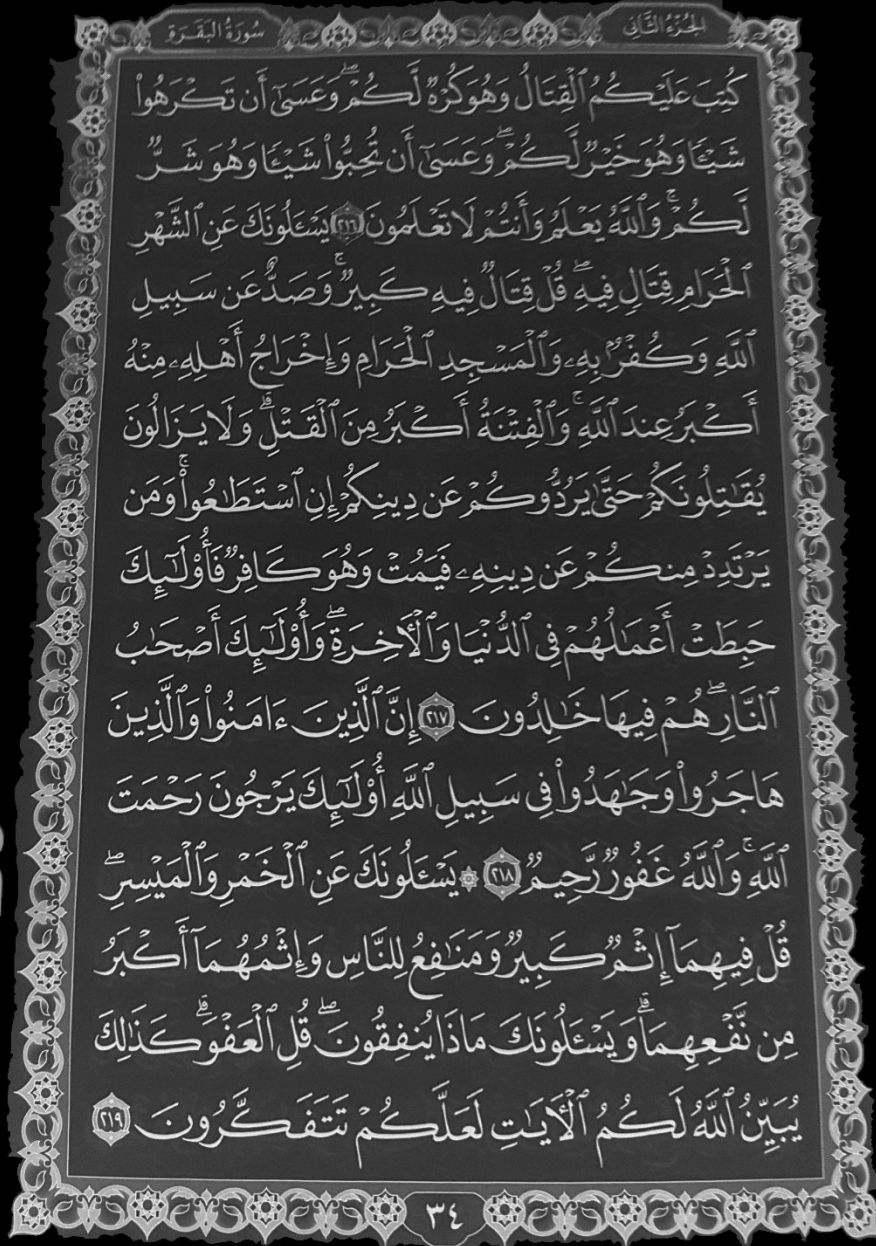 الجزء الثاني سورة البقرة
كُتِبَ عَلَيْكُمُ ٱلْقِتَالُ وَهُوَ كُرْهٌ لَّكُمْ ۖ وَعَسَىٰٓ أَن تَكْرَهُوا۟
شَيْـًٔا وَهُوَ خَيْرٌ لَّكُمْ ۖ وَعَسَىٰٓ أَن تُحِبُّوا۟ شَيْـًٔا وَهُوَ شَرٌّ
لَّكُمْ ۗ وَٱللَّهُ يَعْلَمُ وَأَنتُمْ لَا تَعْلَمُونَ ٢١٦ يَسْـَٔلُونَكَ عَنِ ٱلشَّهْرِ
ٱلْحَرَامِ قِتَالٍ فِيهِ ۖ قُلْ قِتَالٌ فِيهِ كَبِيرٌ ۚ وَصَدٌّ عَن سَبِيلِ
ٱللَّهِ وَكُفْرٌۢ بِهِۦ وَٱلْمَسْجِدِ ٱلْحَرَامِ وَإِخْرَاجُ أَهْلِهِۦ مِنْهُ
أَكْبَرُ عِندَ ٱللَّهِ ۚ وَٱلْفِتْنَةُ أَكْبَرُ مِنَ ٱلْقَتْلِ ۗ وَلَا يَزَالُونَ
يُقَـٰتِلُونَكُمْ حَتَّىٰ يَرُدُّوكُمْ عَن دِينِكُمْ إِنِ ٱسْتَطَـٰعُوا۟ ۚ وَمَن
يَرْتَدِدْ مِنكُمْ عَن دِينِهِۦ فَيَمُتْ وَهُوَ كَافِرٌ فَأُو۟لَـٰٓئِكَ
حَبِطَتْ أَعْمَـٰلُهُمْ فِى ٱلدُّنْيَا وَٱلْـَٔاخِرَةِ ۖ وَأُو۟لَـٰٓئِكَ أَصْحَـٰبُ
ٱلنَّارِ ۖ هُمْ فِيهَا خَـٰلِدُونَ ٢١٧ إِنَّ ٱلَّذِينَ ءَامَنُوا۟ وَٱلَّذِينَ
هَاجَرُوا۟ وَجَـٰهَدُوا۟ فِى سَبِيلِ ٱللَّهِ أُو۟لَـٰٓئِكَ يَرْجُونَ رَحْمَتَ
ٱللَّهِ ۚ وَٱللَّهُ غَفُورٌ رَّحِيمٌ ٢١٨ ۞ يَسْـَٔلُونَكَ عَنِ ٱلْخَمْرِ وَٱلْمَيْسِرِ ۖ
قُلْ فِيهِمَآ إِثْمٌ كَبِيرٌ وَمَنَـٰفِعُ لِلنَّاسِ وَإِثْمُهُمَآ أَكْبَرُ
مِن نَّفْعِهِمَا ۗ وَيَسْـَٔلُونَكَ مَاذَا يُنفِقُونَ ۖ قُلِ ٱلْعَفْوَ ۗ كَذَٰلِكَ
يُبَيِّنُ ٱللَّهُ لَكُمُ ٱلْـَٔايَـٰتِ لَعَلَّكُمْ تَتَفَكَّرُونَ ٢١٩
٣٤